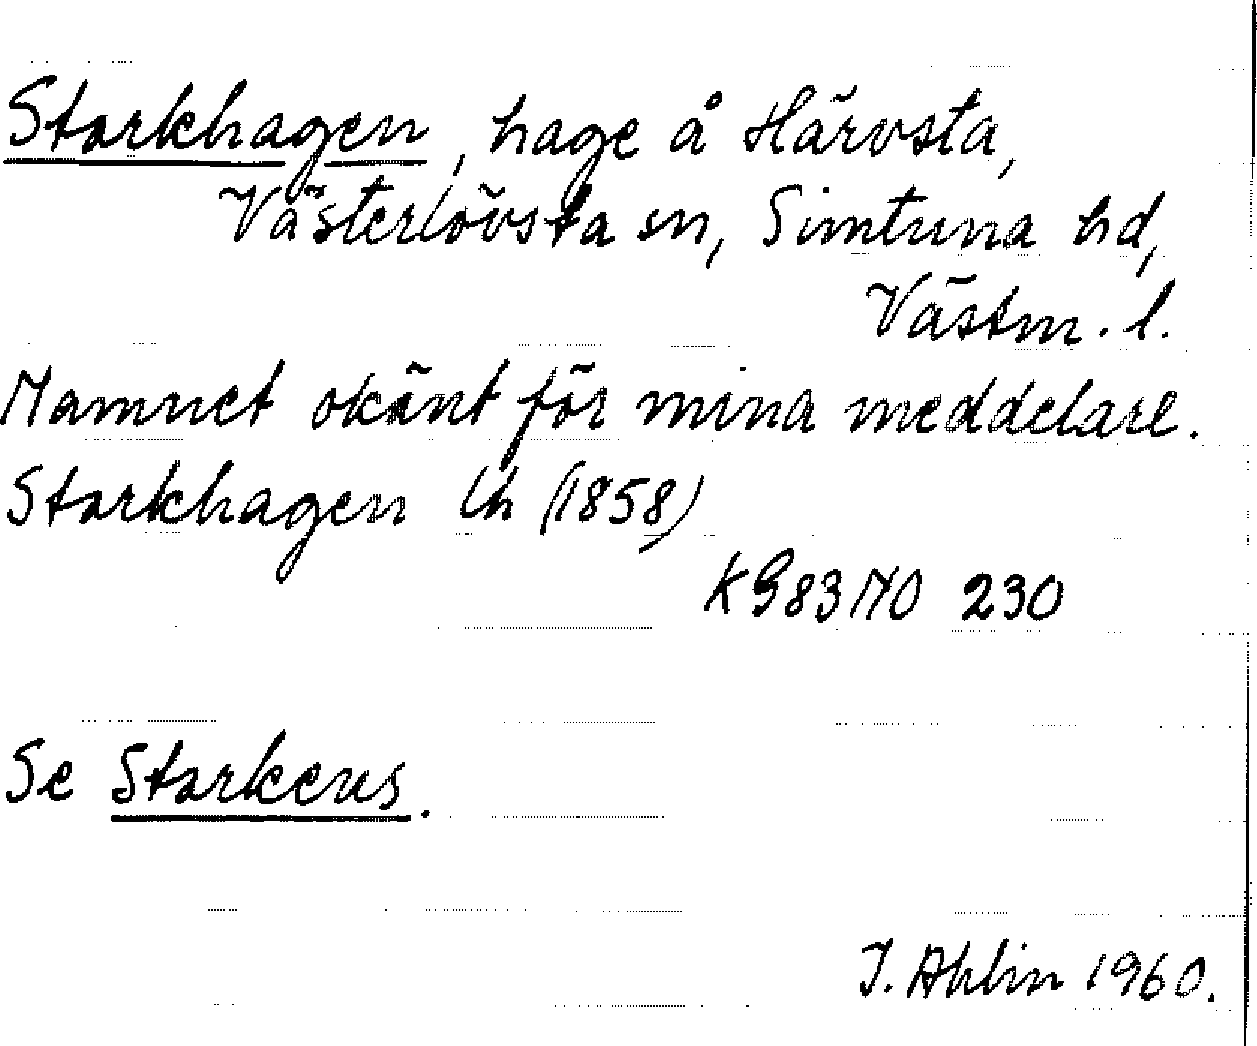 Starkhagen, hage å Härvsta,
Västerlövsta sn, Simtuna hd,
Västm. l.
Namnet okänt för mina meddelare.
Starkhagen Lh (1858)
KG83NO 230
Se Starkens.
I. Ahlin 1960.